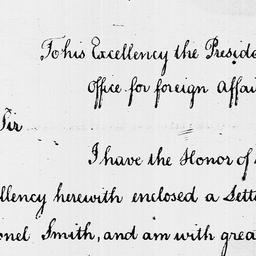 To his Excellency the Preside
Office for foreign Affai
Sir
I have the Honor of
llency herewith enclosed a Lette
onel Smith, and am with grea